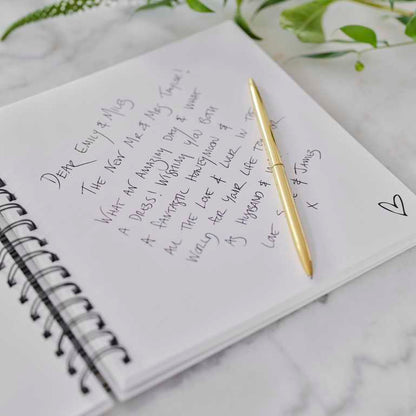 DEAR EMILY & MILES
THE NEW MR & MRS TAYLOR!
WHAT AN AMAZING DAY & WHAT
A DRESS! WISHING YOU BOTH
A FANTASTIC HONEYMOON &
ALL THE LOVE & LUCK IN THE
WORLD FOR YOUR LIFE TOGETHER
AS HUSBAND &
LOVE & JAMES
X